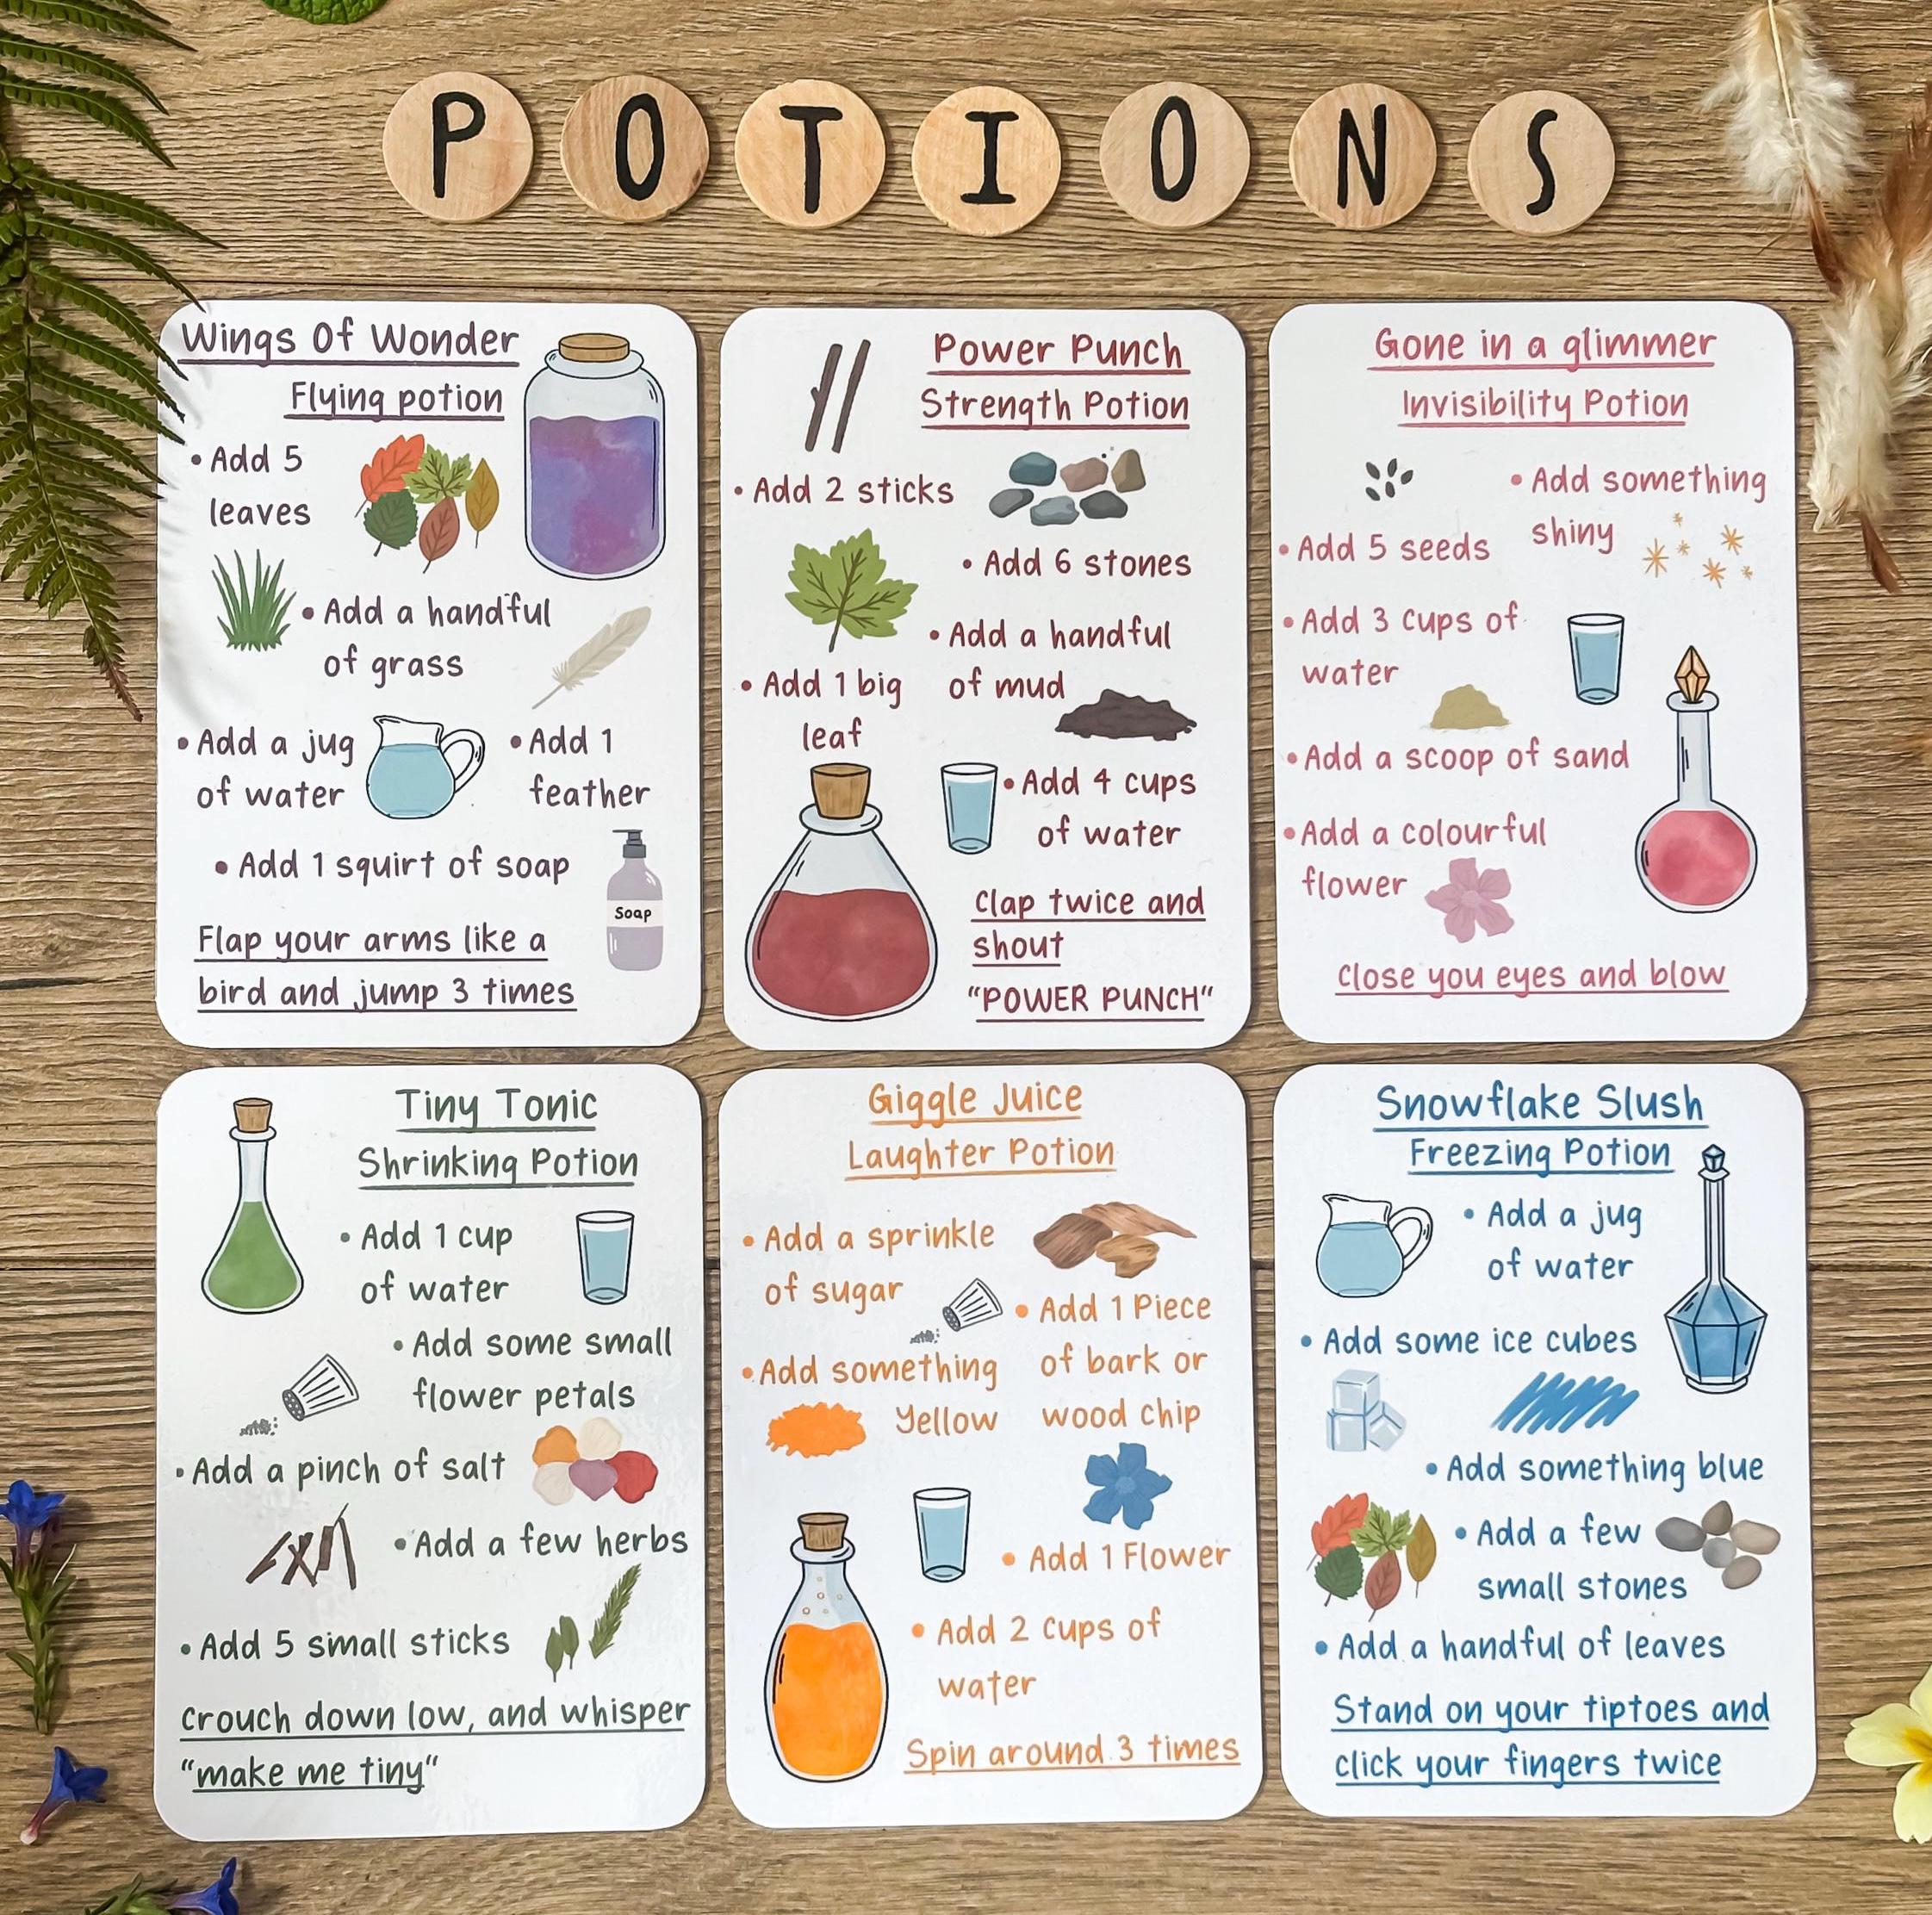 POTIONS
Wings Of Wonder
Flying potion
• Add 5
leaves
• Add a handful
of grass
• Add a jug
of water
• Add 1
feather
• Add 1 squirt of soap
Soap
Flap your arms like a
bird and jump 3 times
Power Punch
Strength Potion
• Add 2 sticks
• Add 6 stones
• Add a handful
of mud
• Add 1 big
leaf
• Add 4 cups
of water
Clap twice and
shout
“POWER PUNCH”
Gone in a glimmer
Invisibility Potion
• Add something
shiny
• Add 5 seeds
• Add 3 cups of
water
• Add a scoop of sand
• Add a colourful
flower
Close you eyes and blow
Tiny Tonic
Shrinking Potion
• Add 1 cup
of water
• Add some small
flower petals
• Add a pinch of salt
• Add a few herbs
• Add 5 small sticks
Crouch down low, and whisper
“make me tiny“
Giggle Juice
Laughter Potion
• Add a sprinkle
of sugar
• Add 1 Piece
of bark or
wood chip
• Add something
Yellow
• Add 1 Flower
• Add 2 cups of
water
Spin around 3 times
Snowflake Slush
Freezing Potion
• Add a jug
of water
• Add some ice cubes
• Add something blue
• Add a few
small stones
• Add a handful of leaves
Stand on your tiptoes and
click your fingers twice